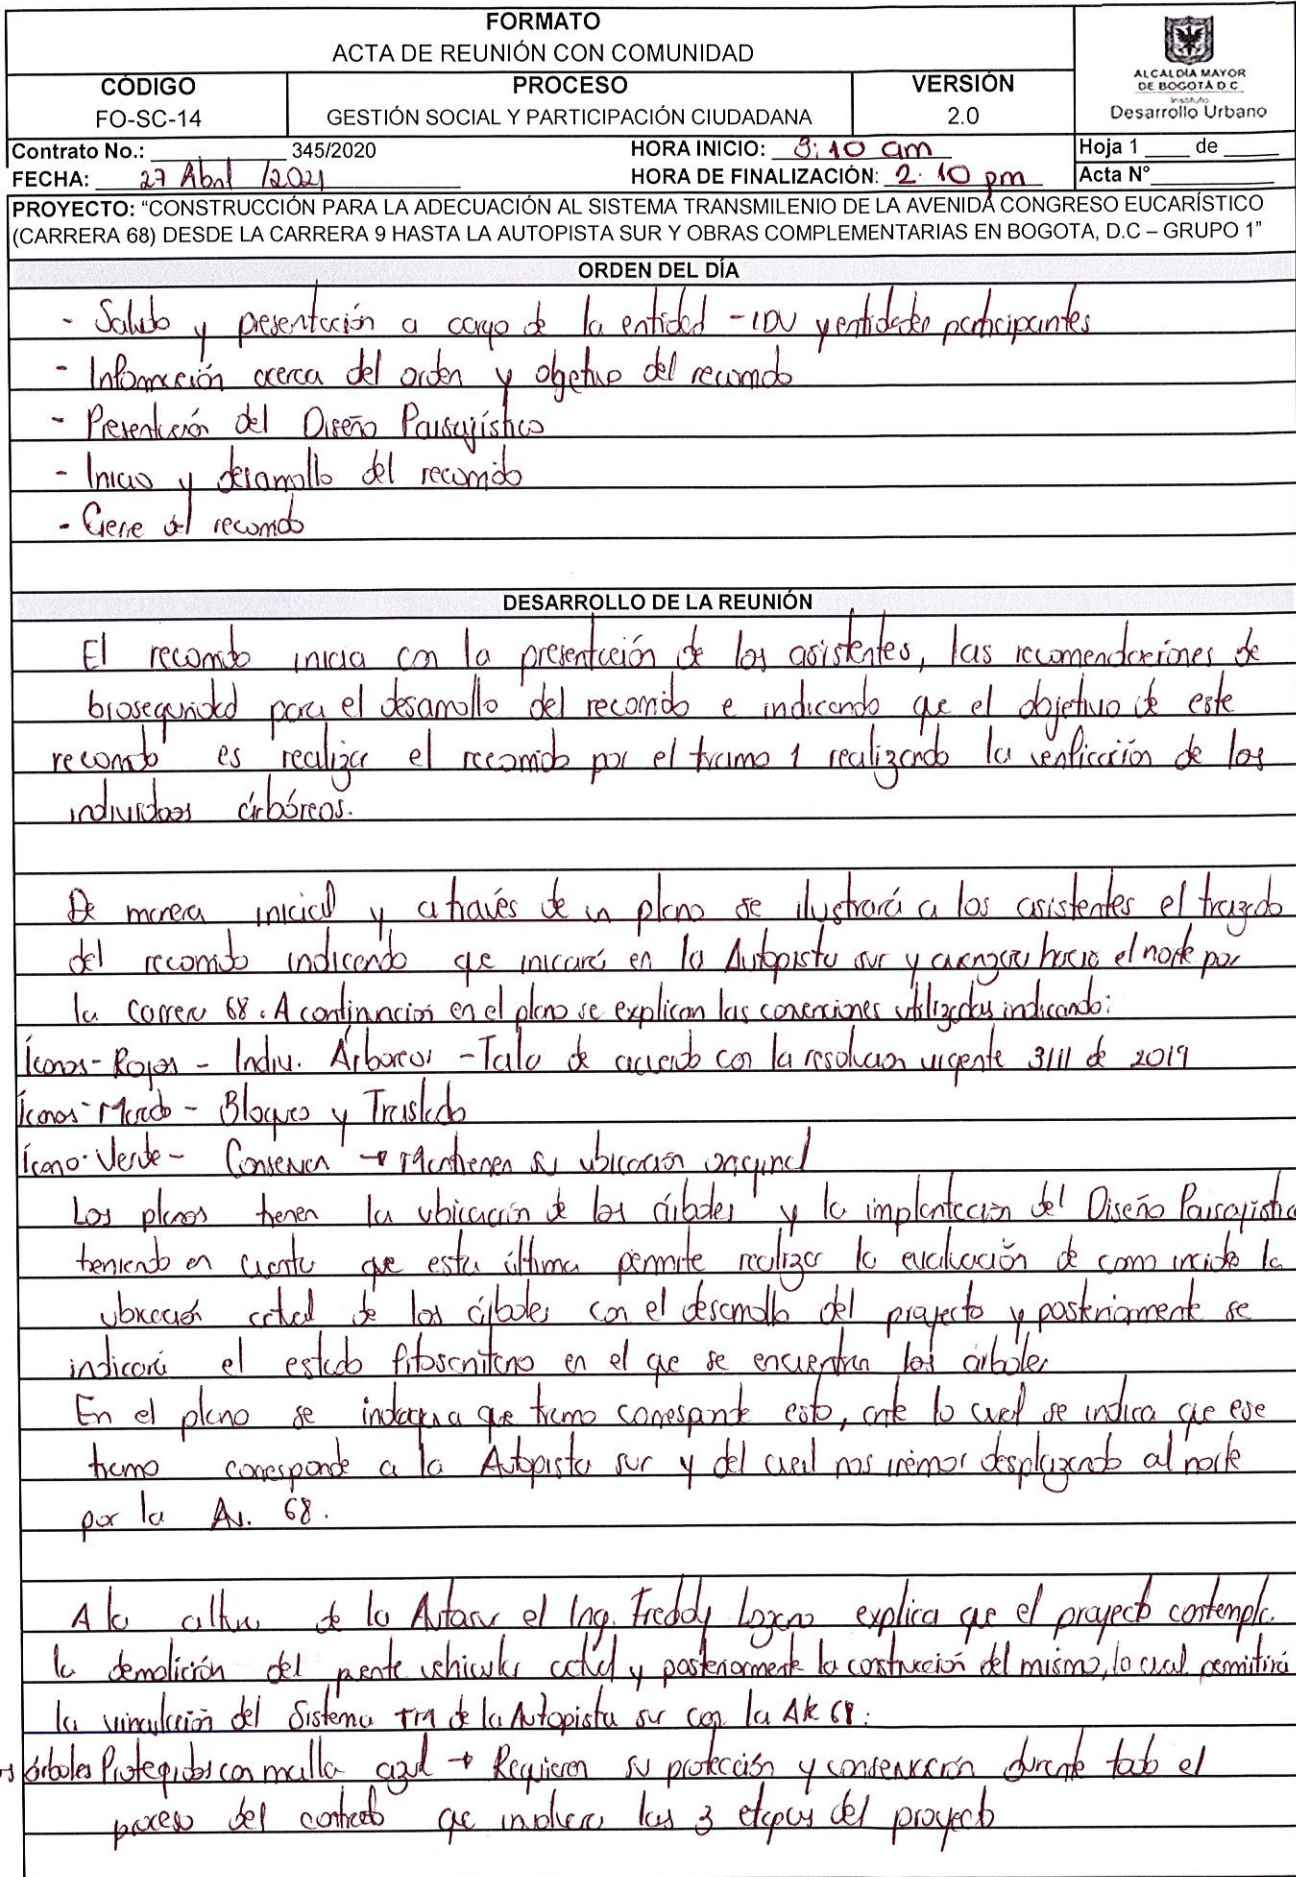 FORMATO
ACTA DE REUNIÓN CON COMUNIDAD
CÓDIGO
FO-SC-14
PROCESO
GESTIÓN SOCIAL Y PARTICIPACIÓN CIUDADANA
VERSIÓN
2.0
ALCALDÍA MAYOR
DE BOGOTÁ D.C.
Instituto
Desarrollo Urbano
Contrato No.: 345/2020
HORA INICIO: 9:10 am
Hoja 1 ____ de ____
FECHA: 27 Abril /2021
HORA DE FINALIZACIÓN: 2:10 pm
Acta N°
PROYECTO: "CONSTRUCCIÓN PARA LA ADECUACIÓN AL SISTEMA TRANSMILENIO DE LA AVENIDA CONGRESO EUCARÍSTICO
(CARRERA 68) DESDE LA CARRERA 9 HASTA LA AUTOPISTA SUR Y OBRAS COMPLEMENTARIAS EN BOGOTA, D.C – GRUPO 1"
ORDEN DEL DÍA
- Saludo y presentación a cargo de la entidad - IDU y entidades participantes
- Información acerca del orden y objetivo del recorrido
- Presentación del Diseño Paisajístico
- Inicio y desarrollo del recorrido
- Cierre del recorrido
DESARROLLO DE LA REUNIÓN
El recorrido inicia con la presentación de los asistentes, las recomendaciones de
bioseguridad para el desarrollo del recorrido e indicando que el objetivo de este
recorrido es realizar el recorrido por el tramo 1 realizando la verificación de los
individuos árbóreos.
De manera inicial y a través de un plano se ilustrará a los asistentes el trazado
del recorrido indicando que iniciará en la Autopista sur y avanzará hacia el norte por
la Carrera 68. A continuación en el plano se explican las convenciones utilizadas indicando:
Íconos - Rojos - Indiv. Árboreos - Tala de acuerdo con la resolucion vigente 3111 de 2019
Íconos - Morado - Bloqueo y Traslado
Ícono - Verde - Conservan → Mantienen su ubicación original
Los planos tienen la ubicación de los árboles y la implantación del Diseño Paisajístico
teniendo en cuenta que esta última permite realizar la evaluación de como incide la
ubicación actual de los árboles con el desarrollo del proyecto y posteriormente se
indicará el estado fitosanitario en el que se encuentran los árboles
En el plano se indaga que tramo corresponde esto, ante lo cual se indica que ese
tramo corresponde a la Autopista sur y del cual nos iremos desplazando al norte
por la Av. 68.
A la altura de la Autosur el Ing. Freddy Lozano explica que el proyecto contempla
la demolición del puente vehicular actual y posteriormente la construcción del mismo, lo cual permitirá
la vinculación del Sistema TM de la Autopista sur con la AK 68:
árboles Protegidos con malla azul → Requieren su protección y conservación durante todo el
proceso del contrato que involucra las 3 etapas del proyecto